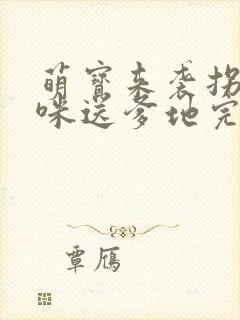 萌宝来袭拐
咪送爹地完
覃雁